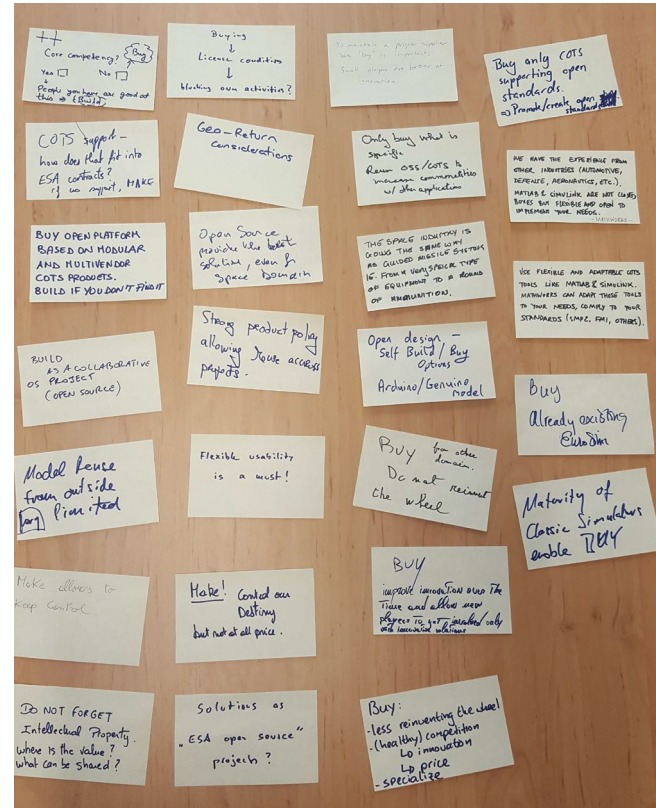 ++
Core competency?
Buy
Yes No
People you have are good at
this → Build
COTS support –
how does that fit into
ESA contracts?
if no support, MAKE
BUY OPEN PLATFORM
BASED ON MODULAR
AND MULTIVENDOR
COTS PRODUCTS.
BUILD IF YOU DON'T FIND IT
BUILD
AS A COLLABORATIVE
OS PROJECT
(OPEN SOURCE)
Model Reuse
from outside
very limited
Make allows to
Keep Control
DO NOT FORGET
Intellectual Property.
where is the value?
what can be shared?
Buying
↓
Licence condition
↓
blocking own activities?
Geo-Return
Considerations
Open Source
provides the best
solution, even for
Space Domain
Strong product policy
allowing reuse accross
projects.
Flexible usability
is a must!
Make! Control our
Destiny
but not at all price.
Solutions as
"ESA open source"
projects?
To maintain a proper supplier
"buy" is important.
Small players are better at
innovation
Only buy what is
specific
Reuse OSS/COTS to
increase commonalities
w/ other applications
THE SPACE INDUSTRY IS
GOING THE SAME WAY
AS GUIDED MISSILE SYSTEMS
IE. FROM A VERY SPECIAL TYPE
OF EQUIPMENT TO A ROUND
OF AMMUNITION.
Open design –
Self Build / Buy
Options
Arduino/Genuino
model
BUY from other
domain.
Do not reinvent
the wheel
BUY
improve innovation over the
Time and allow new
players to get involved only
with innovative solutions
Buy:
- less reinventing the wheel
- (healthy) competition
↳ innovation
↳ price
- specialize
Buy only COTS
supporting open
standards.
⇒ Promote/create open
standards
WE HAVE THE EXPERIENCE FROM
OTHER INDUSTRIES (AUTOMOTIVE,
DEFENSE, AERONAUTICS, ETC.).
MATLAB & SIMULINK ARE NOT CLOSED
BOXES BUT FLEXIBLE AND OPEN TO
IMPLEMENT YOUR NEEDS.
- MATHWORKS -
USE FLEXIBLE AND ADAPTABLE COTS
TOOLS LIKE MATLAB & SIMULINK.
MATHWORKS CAN ADAPT THESE TOOLS
TO YOUR NEEDS, COMPLY TO YOUR
STANDARDS (SMP2, FMI, OTHERS).
Buy
Already existing
EuroSim
Maturity of
Classic Simulators
enable BUY